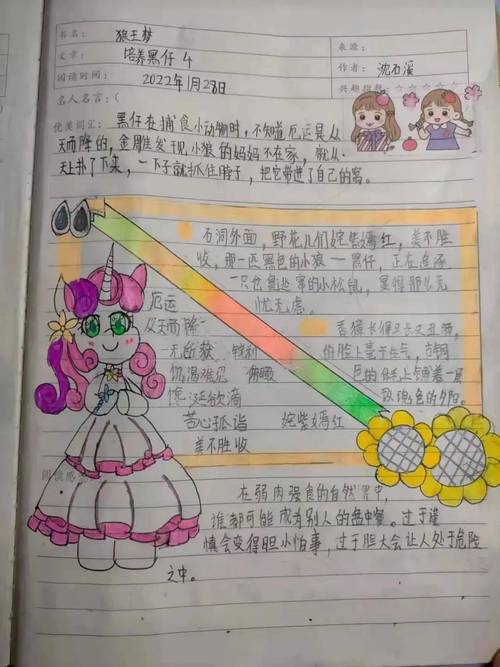 书名: 狼王梦
来源:
文章: 培养黑仔 4
作者: 沈石溪
阅读时间: 2022年1月28日
兴趣指数:
名人名言:(
优美词汇: 黑仔在捕食小动物时,不知道厄运是从
天而降的,金雕发现小狼的妈妈不在家,就从
天上扑了下来,一下子就抓住脖子,把它带进了自己的窝。
石洞外面,野花儿们姹紫嫣红,美不胜
收,那一匹黑色的小狼一黑仔,正在追逐
一只也逃窜的小松鼠,显得那么无
忧无虑。
厄运
从天而降
无所获 锐利
饥渴难忍 俯瞰
馋涎欲滴
苦心孤诣 姹紫嫣红
美不胜收
长得又长又丑陋,
的脸上毫无生气,古铜
色的体毛上铺着一层
玫瑰色的夕阳。
阅读感
在弱肉强食的自然界中,
谁都可能成为别人的盘中餐。过于谨
慎会变得胆小怕事,过于胆大会让人处于危险
之中。